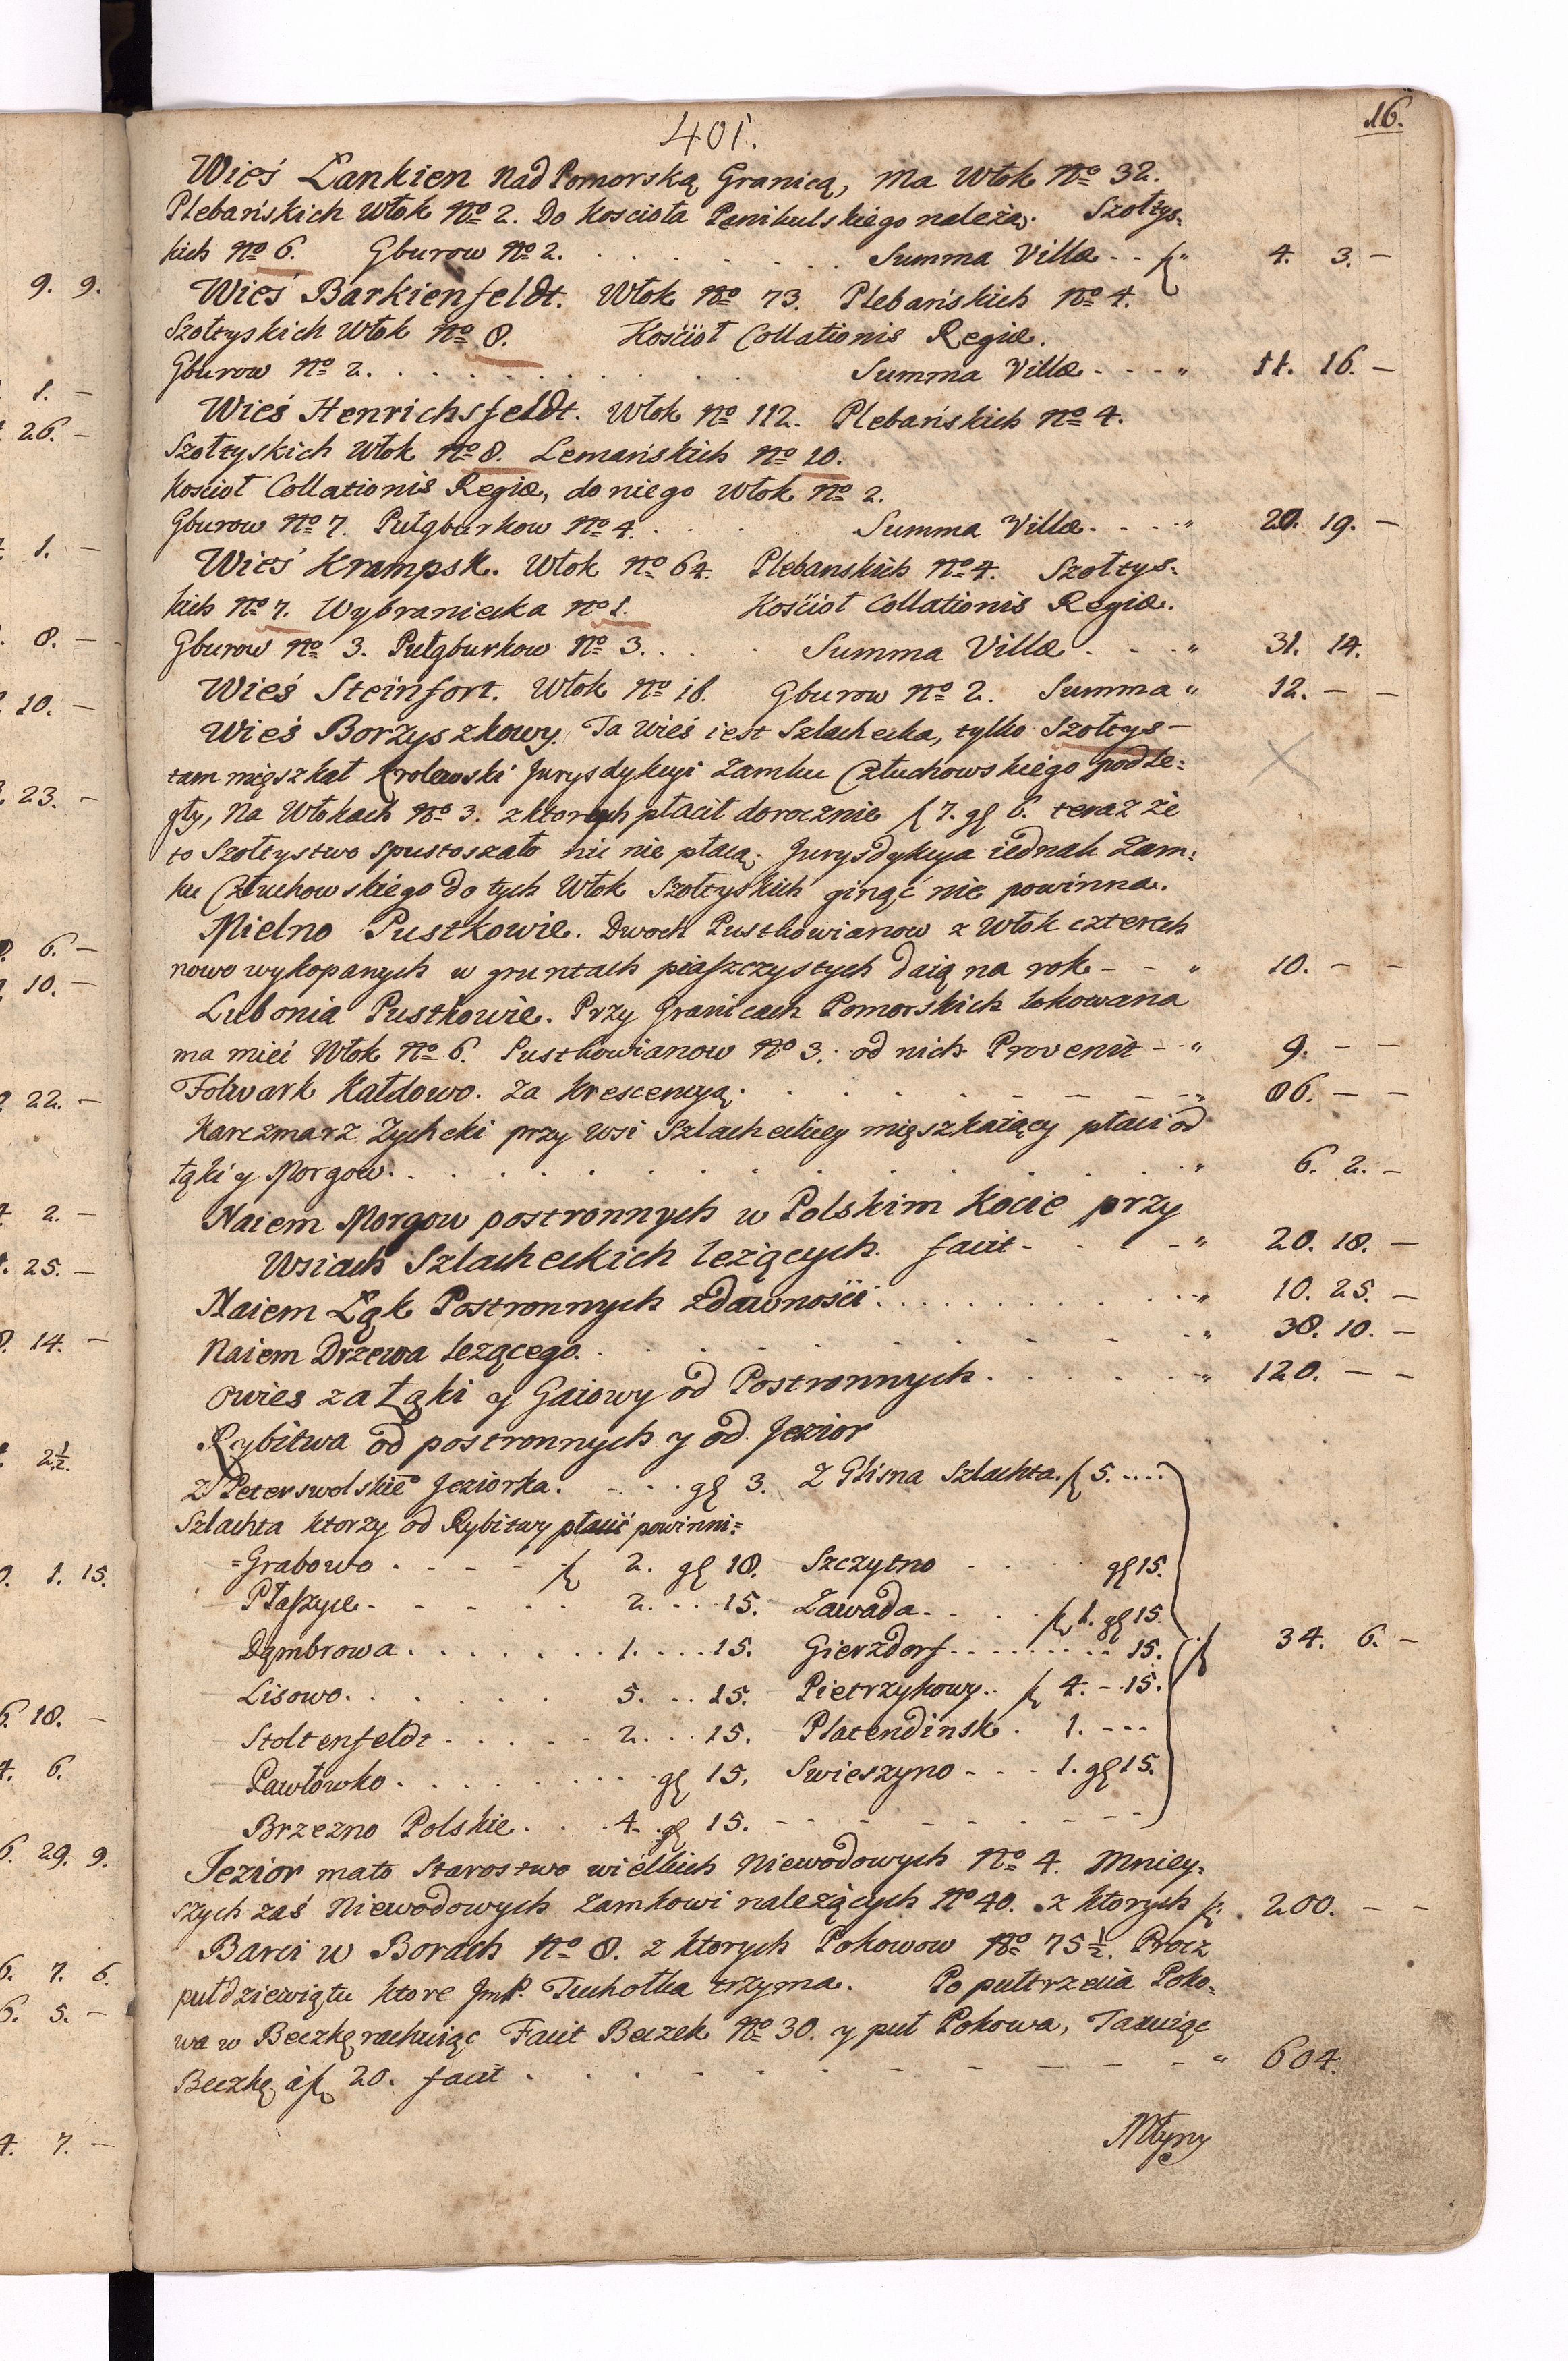 401.
16.
Wieś Lankien nad Pomorską Granicą, ma Włok No 32.
Plebańskich Włok No 2. Do Koscioła Penikulskiego należą. Szołtys=
kich No 6. Gburow No 2. . . . . . . . . Summa Villæ - - f " 4. 3. –
Wieś Barkienfeldt. Włok No 73. Plebańskich No 4.
Szołtyskich Włok No 8. Kościoł Collationis Regiæ.
Gburow No 2. . . . . . . . . . . Summa Villæ - - - " 11. 16. –
Wieś Henrichsfeldt. Włok No 112. Plebańskich No 4.
Szołtyskich Włok No 8. Lemańskich No 10.
Kościoł Collationis Regiæ, do niego Włok No 2.
Gburow No 7. Pułgburkow No 4. . . . Summa Villæ - - - " 20. 19. –
Wieś Krampsk. Włok No 64. Plebanskich No 4. Szołtys=
kich No 7. Wybraniecka No 1. Kościoł Collationis Regiæ.
Gburow No 3. Pułgburkow No 3. . . . Summa Villæ . - - " 31. 14.
Wieś Steinfort. Włok No 18. Gburow No 2. Summa " 12. – –
Wieś Borzyszkowy. Ta Wieś iest Szlachecka, tylko Szołtys –
tam mięszkał Krolewski Jurysdykcyi Zamku Człuchowskiego podle=
gły, Na Włokach No 3. z ktorych płacił dorocznie f 7. gl 6. teraz że
to Szołtystwo spustoszało nic nie płacą. Jurysdykcya iednak Zam=
ku Człuchowskiego do tych Włok Szołtyskich ginąć nie powinna.
Mielno Pustkowie. Dwoch Pustkowianow z Włok czterech
nowo wykopanych w gruntach piaszczystych daią na rok - - " 10. – –
Lubonia Pustkowie. Przy Granicach Pomorskich lokowana
ma mieć Włok No 6. Pustkowianow No 3. od nich Provenit - " 9. – –
Folwark Kałdowo. Za Krescencyą. . . . . . - - - - " 86. – –
Karczmarz Zychcki przy Wsi Szlacheckiey mięszkaiący płaci od
łąki y Morgow. . . . . . . . . . . . . " 6. 2. –
Naiem Morgow postronnych w Polskim Kocie przy
Wsiach Szlacheckich leżących. facit - - - - " 20. 18. –
Naiem Łąk Postronnych zdawności . . . . . . . . . " 10. 25. –
Naiem Drzewa leżącego. . . . . . - - - - " 38. 10. –
Owies za Łąki y Gaiowy od Postronnych . . . . . . " 120. – –
Rybitwa od postronnych y od Jezior
Z Peterswolskie Jeziorka. - . . . gl 3. Z Glisna Szlachta. f 5. ....
Szlachta ktorzy od Rybitwy płacić powinni=
=Grabowo . - - - - f 2. gl 18. Szczytno . . . gl 15.
Płaszyce - - - - - 2. . . . 15. Zawada - . . . f 1. gl 15.
Dąmbrowa . . . . . . . 1. . . . 15. Gierzdorf - - . . . . . 15. f 34. 6. –
Lisowo. . . . . . 5. . . 15. Pietrzykowy . . f 4. - 15.
Stoltenfeldt . . . . . 2. . . . 15. Platendinsk . 1. - - -
Pawłówko . . . . . . . . gl 15. Swieszyno - - - 1. gl 15.
Brzezno Polskie . . . 4. gl 15. - - - - - - - - -
Jezior mało Starostwo wielkich Niewodowych No 4. Mniey=
szych zaś Niewodowych Zamkowi należących No 40. z ktorych f. 200. – –
Barci w Borach No 8. z ktorych Pokowow No 75½. Procz
puł dziewiątu ktore JmP. Tuchołka trzyma. Po pułtrzecia Poko=
wa w Beczkę rachuiąc Facit Beczek No 30. y puł Pokowa, Taxuiąc
Beczkę à f 20. facit . . . . . - - - - - " 604.
Młyny
9. 9.
1. –
26. –
1. –
8. –
10. –
23. –
6. –
10. –
22. –
2. –
25. –
14. –
2½.
1. 15.
18. –
6.
29. 9.
7. 6.
5. –
7. –